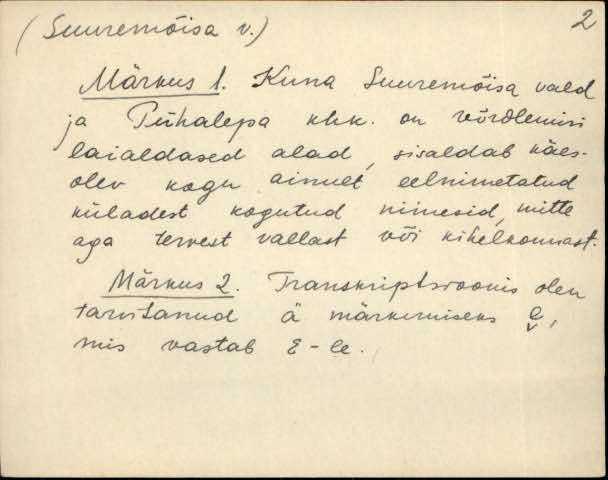 (Suuremõisa v.) 2
Märkus 1. Kuna Suuremõisa vald
ja Pühalepa khk. on võrdlemisi
laialdased alad, sisaldab käes-
olev kogu ainult eelnimetatud
küladest kogutud nimesid, mitte
aga tervest vallast või kihelkonnast.
Märkus 2. Transkriptsioonis olen
tarvitanud ä märkimiseks e̬,
mis vastab ε-le.